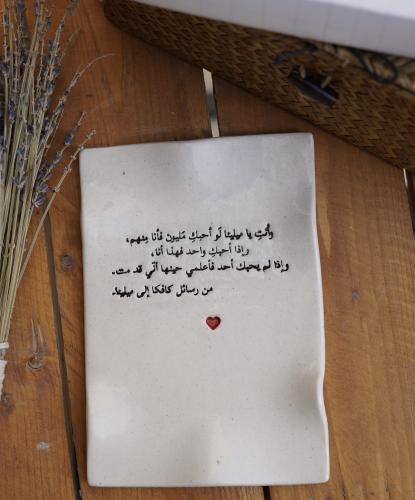 وأنتِ يا ميلينا لَو أحبكِ مَليون فأنا مِنهم،
وإذا أحبكِ واحد فهذا أنا،
وإذا لم يحبك أحد فأعلمي حينها أنّي قد مت.
من رسائل كافكا إلى ميلينا.